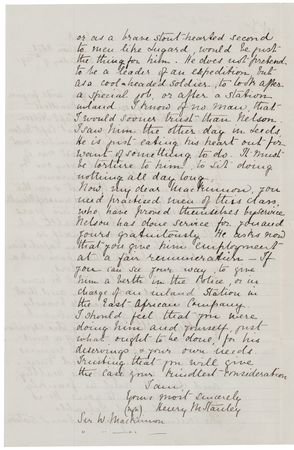 or as a brave stout hearted second
to men like Lugard, would be just
the thing for him. He does not pretend
to be a leader of an expedition but
as a cool-headed soldier, to look after
a special job, or after a station
inland I know of no man, that
I would sooner trust than Nelson.
I saw him the other day in Leeds.
He is just eating his heart out for
want of something to do. It must
be torture to him to sit doing
nothing all day long.
Now, my dear Mackinnon, you
need practised men of this class,
who have proved themselves by service.
Nelson has done service for you and
yours gratuitously He asks now
that you give him employment
at a fair remuneration - If
you can see your way, to give
him a berth in the Police, or in
charge of an inland Station in
the East African Company.
I should feel that you were
doing him and yourself just
what ought to be done, for his
deservings & your own needs.
Trusting that you will give
the case your kindest consideration
I am
Yours most sincerely
Henry M Stanley
Sir W. Mackinnon